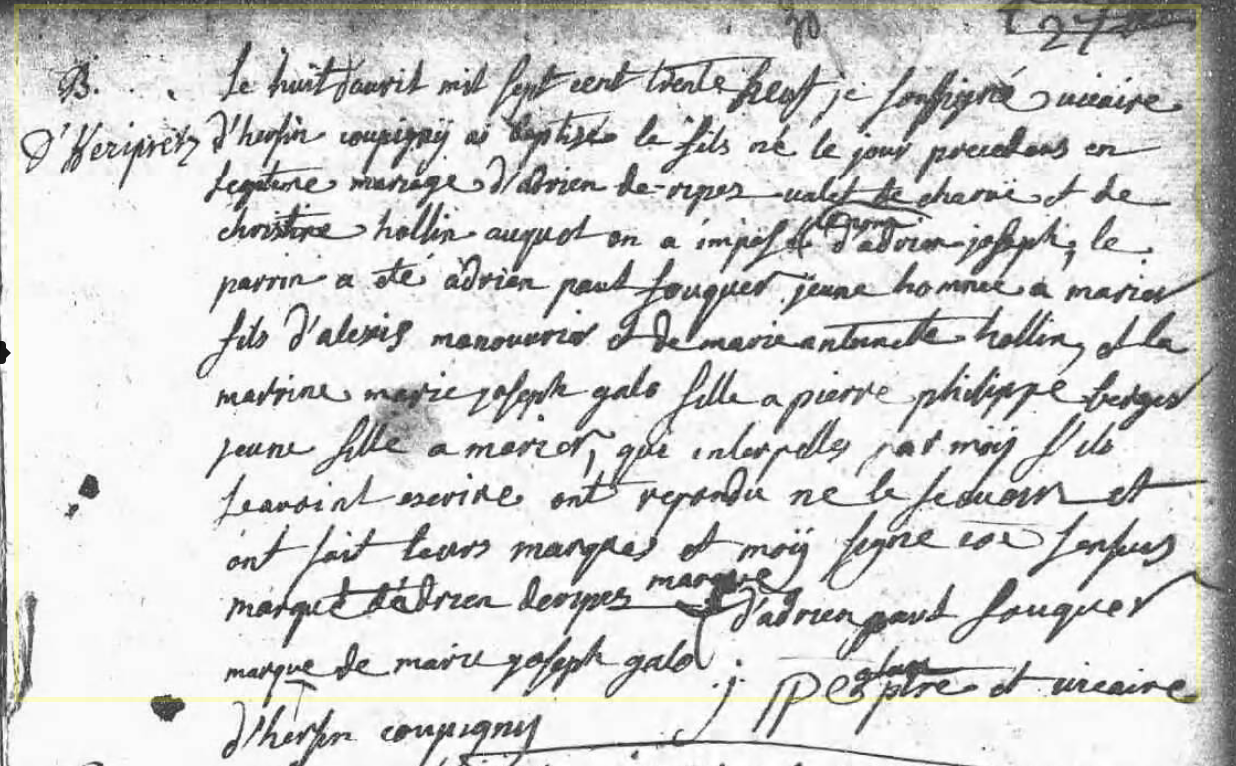 27
B.
D'Heripretz
Le huit d'avril mil sept cent trente neuf je soussigné vicaire
d'hersin coupigny ai baptisé le fils né le jour precedens en
legitime mariage d'adrien de-ripes valet de charuë et de
christine hollin auquel on a imposé le nom d'adrien joseph, le
parrin a eté adrien paul fouquer jeune homme a marier
fils d'alexis manouvrier et de marie antoinette hollin, et la
marrine marie joseph galo fille a pierre philippe berger
jeune fille a marier, qui interpellés par moÿ s'ils
scavoint escrire ont repondu ne le scavoir et
ont fait leurs marques et moÿ signe
marque d'adrien deripes marque d'adrien paul fouquer
marque de marie joseph galo j. ptre et vicaire
d'hersin coupigny